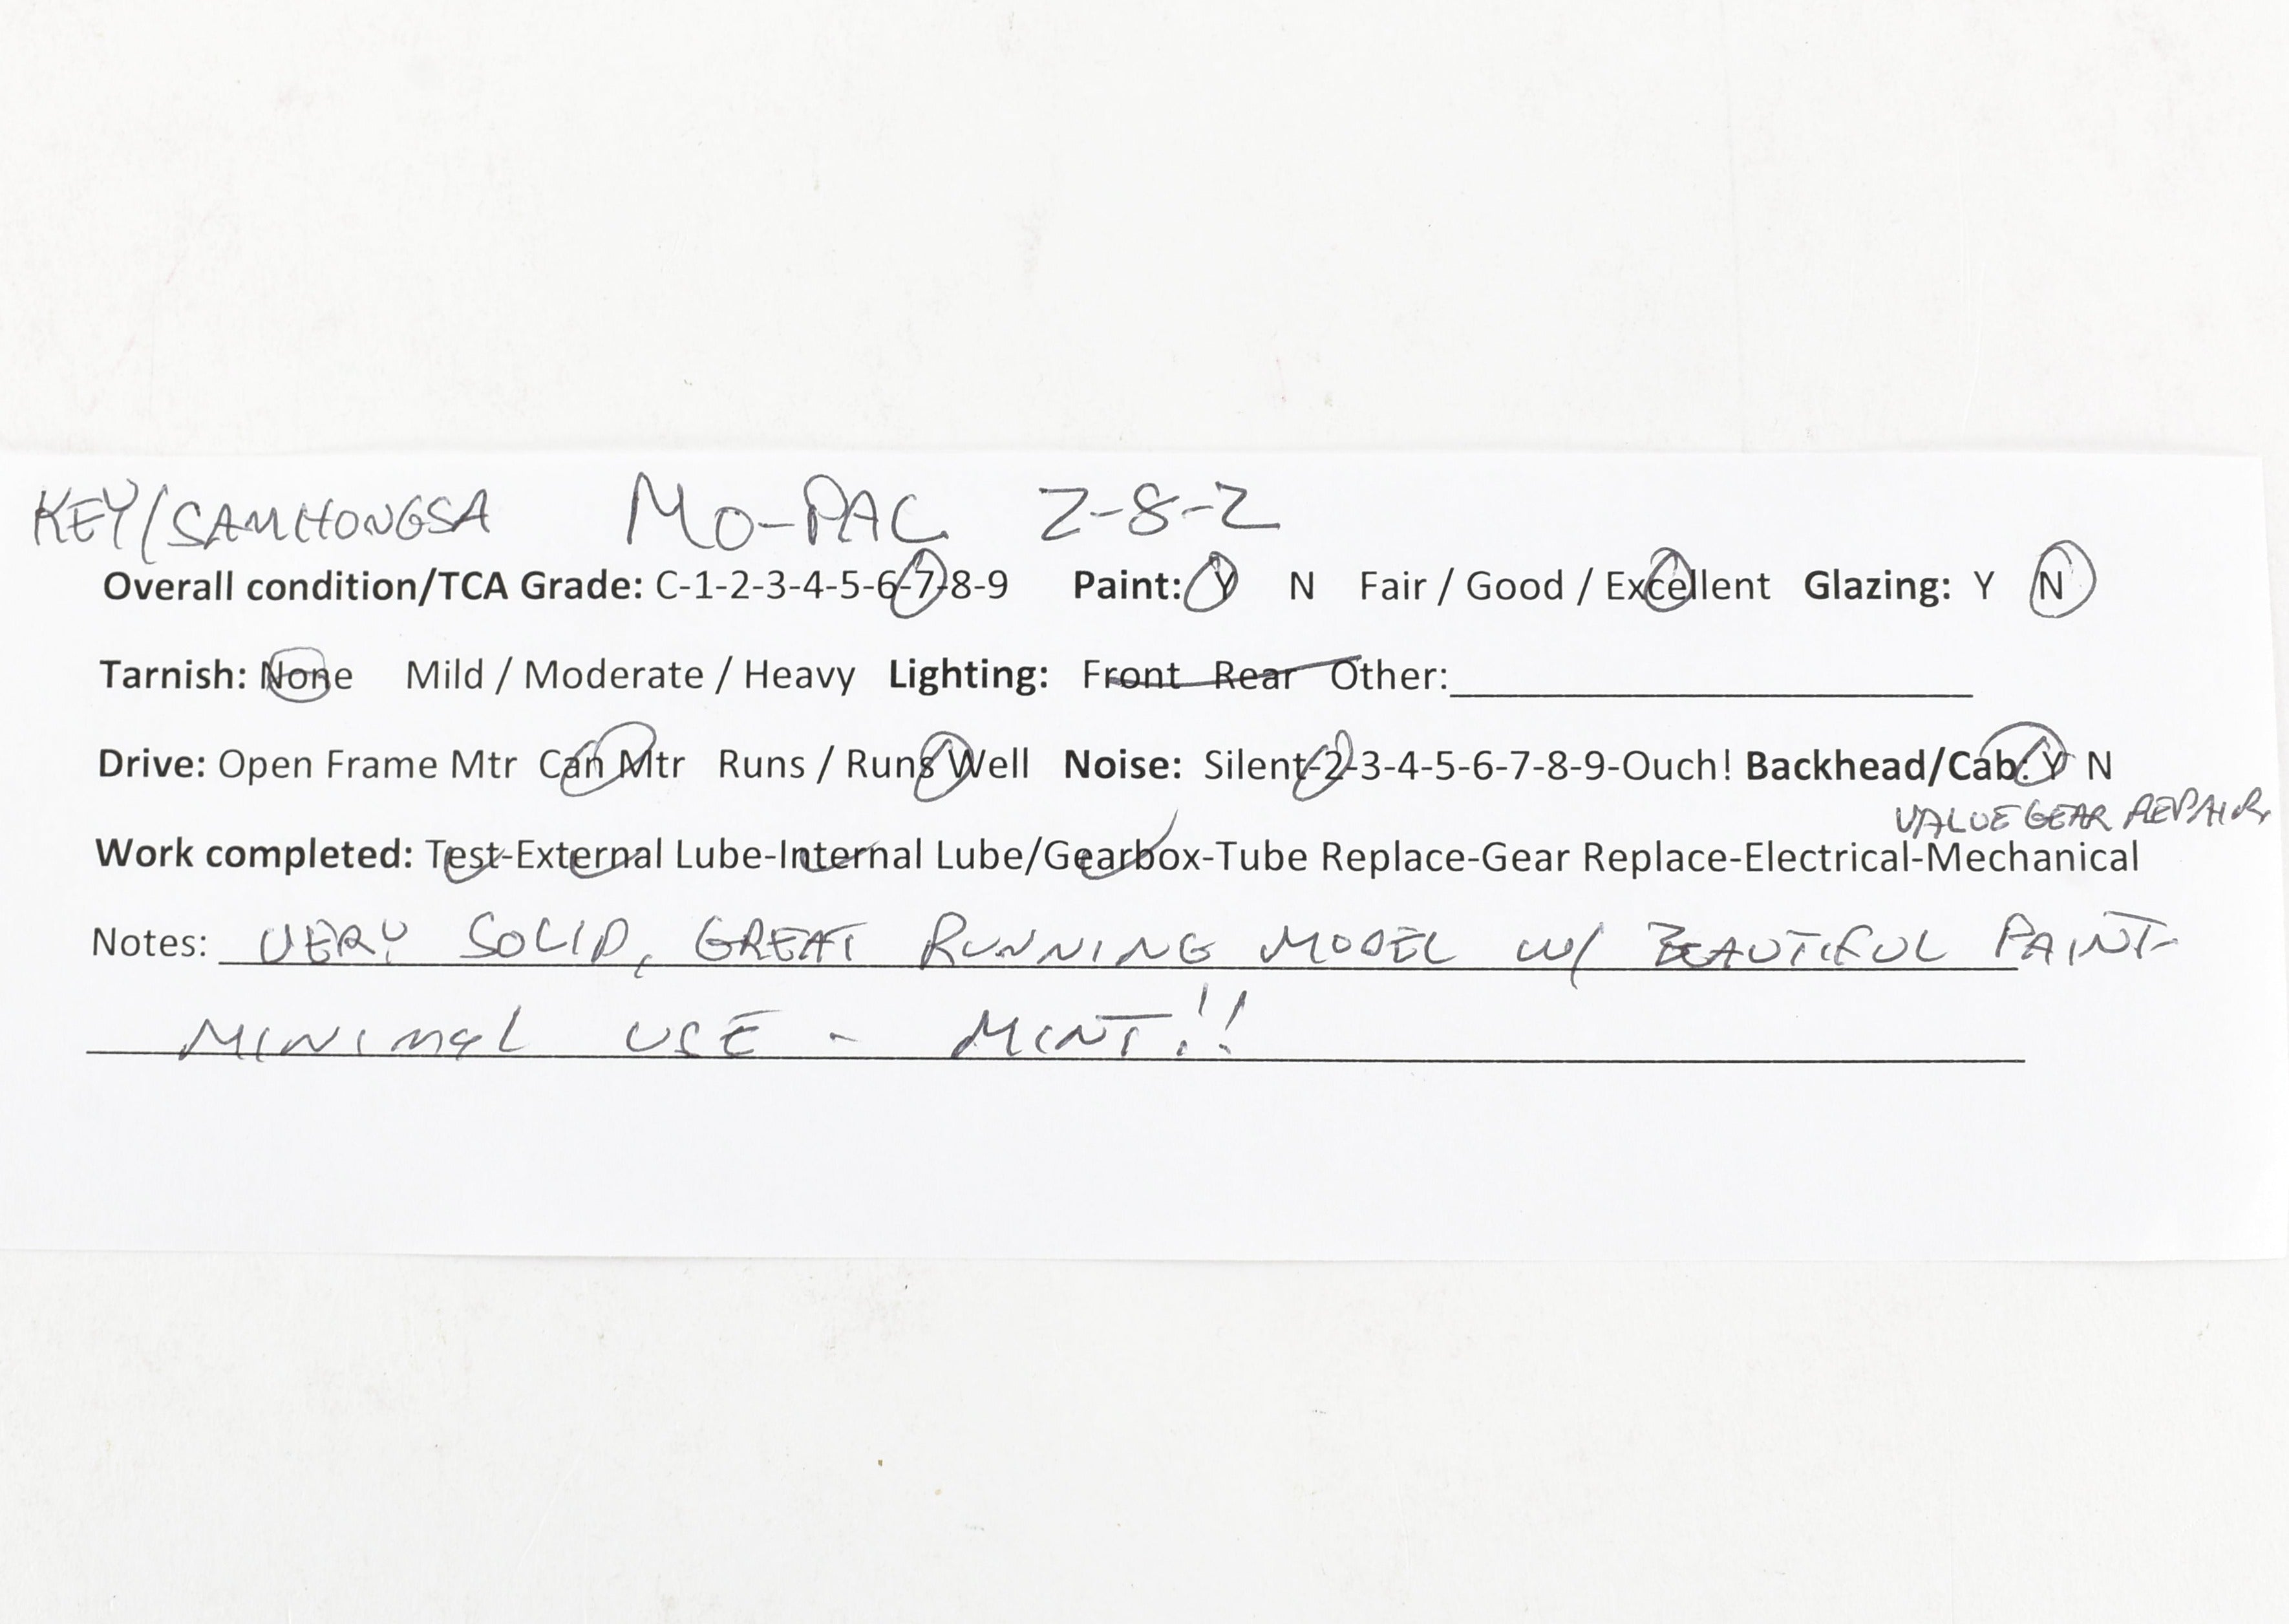 KEY/SAMHONGSA MO-PAC 2-8-2
Overall condition/TCA Grade: C-1-2-3-4-5-6-7-8-9 Paint: Y N Fair / Good / Excellent Glazing: Y N
Tarnish: None Mild / Moderate / Heavy Lighting: Front Rear Other:
Drive: Open Frame Mtr Can Mtr Runs / Runs Well Noise: Silent-2-3-4-5-6-7-8-9-Ouch! Backhead/Cab: Y N
VALUE GEAR REPAIR
Work completed: Test-External Lube-Internal Lube/Gearbox-Tube Replace-Gear Replace-Electrical-Mechanical
Notes: VERY SOLID, GREAT RUNNING MODEL W/ BEAUTIFUL PAINT-
MINIMAL USE - MINT!!